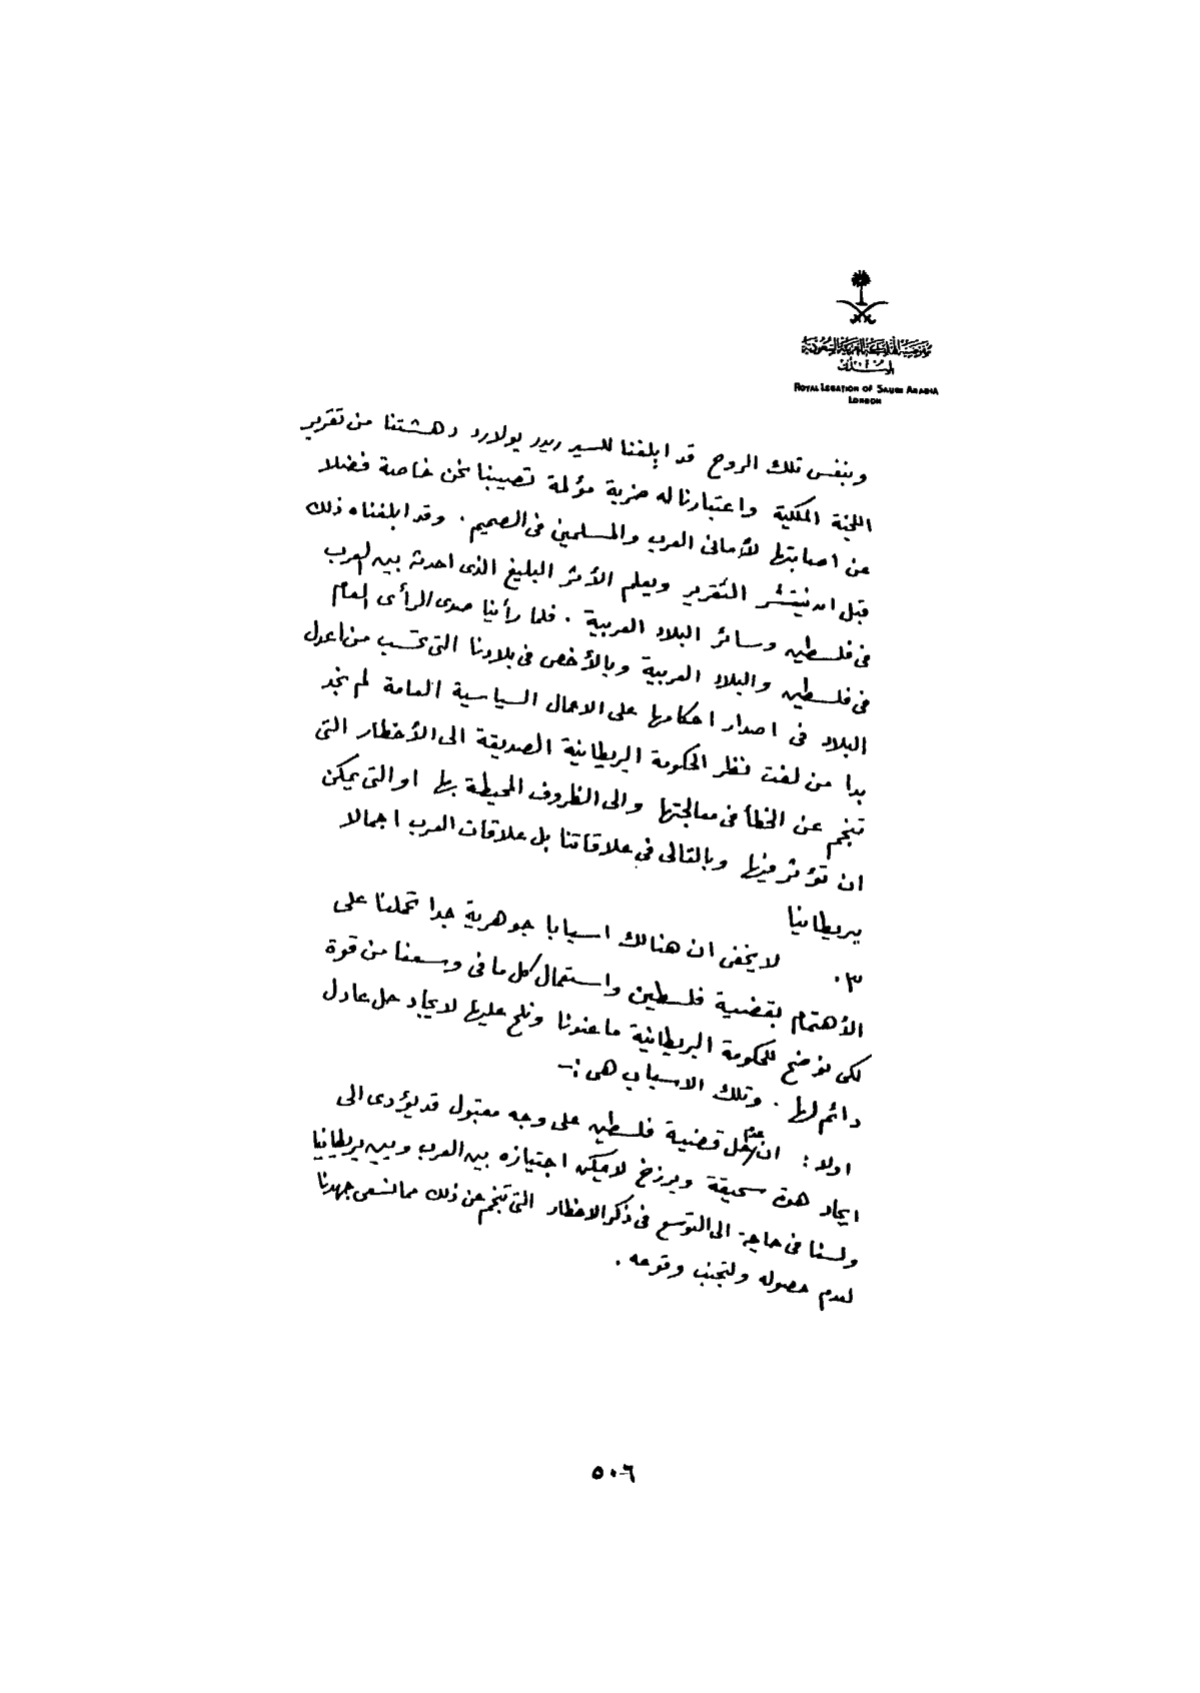 مفوضية المملكة العربية السعودية
لندن
ROYAL LEGATION OF SAUDI ARABIA
LONDON
وبنفس تلك الروح قد ابلغنا للسير ريدر بولارد دهشتنا من تقرير
اللجنة الملكية واعتبارنا له ضربة مؤلمة تصيبنا نحن خاصة فضلا
عن اصابتها للأمانى العرب والمسلمين فى الصميم . وقد ابلغناه ذلك
قبل ان ينتشر التقرير ويعلم الأثر البليغ الذى احدثه بين العرب
فى فلسطين وسائر البلاد العربية . فلما رأينا صدى الرأى العام
فى فلسطين والبلاد العربية وبالأخص فى بلادنا التى تحسب من اعدل
البلاد فى اصدار احكامها على الاعمال السياسية العامة لم نجد
بدا من لفت نظر الحكومة البريطانية الصديقة الى الأخطار التى
تنجم عن الخطأ فى معالجتها والى الظروف المحيطة بها او التى يمكن
ان تؤثر فيها وبالتالى في علاقاتنا بل علاقات العرب اجمالا
ببريطانيا
٣. لا يخفى ان هنالك اسبابا جوهرية جدا تحملنا على
الأهتمام بقضية فلسطين واستعمال كل ما فى وسعنا من قوة
لكى نوضح للحكومة البريطانية ما عندنا ونلح عليها لايجاد حل عادل
دائم لها . وتلك الاسباب هى :-
اولا : ان عدم حل قضية فلسطين على وجه مقبول قد يؤدى الى
ايجاد هوة سحيقة وبرزخ لا يمكن اجتيازه بين العرب وبين بريطانيا
ولسنا فى حاجة الى التوسع فى ذكر الاخطار التى تنجم عن ذلك مما نسعى جهدنا
لعدم حصوله ولتجنب وقوعه .
٥٠٦